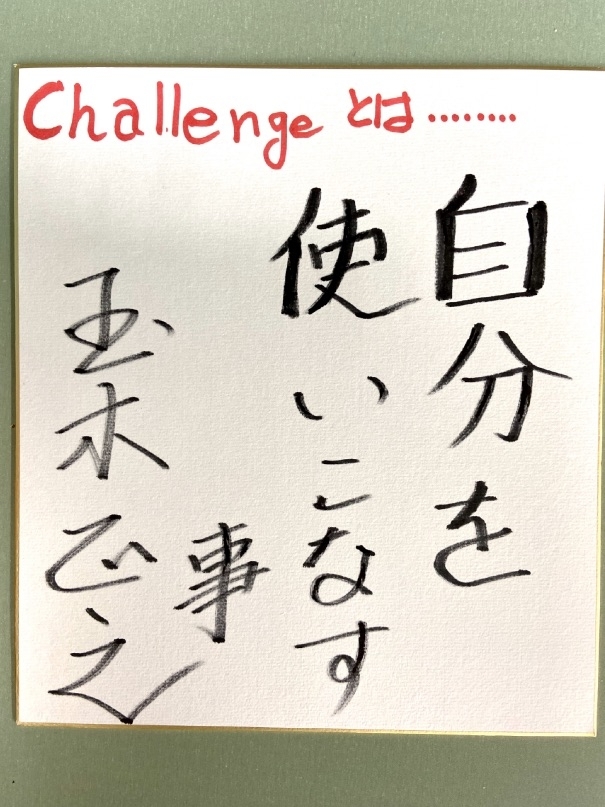 Challenge とは········
自分を
使いこなす
事
玉木正之